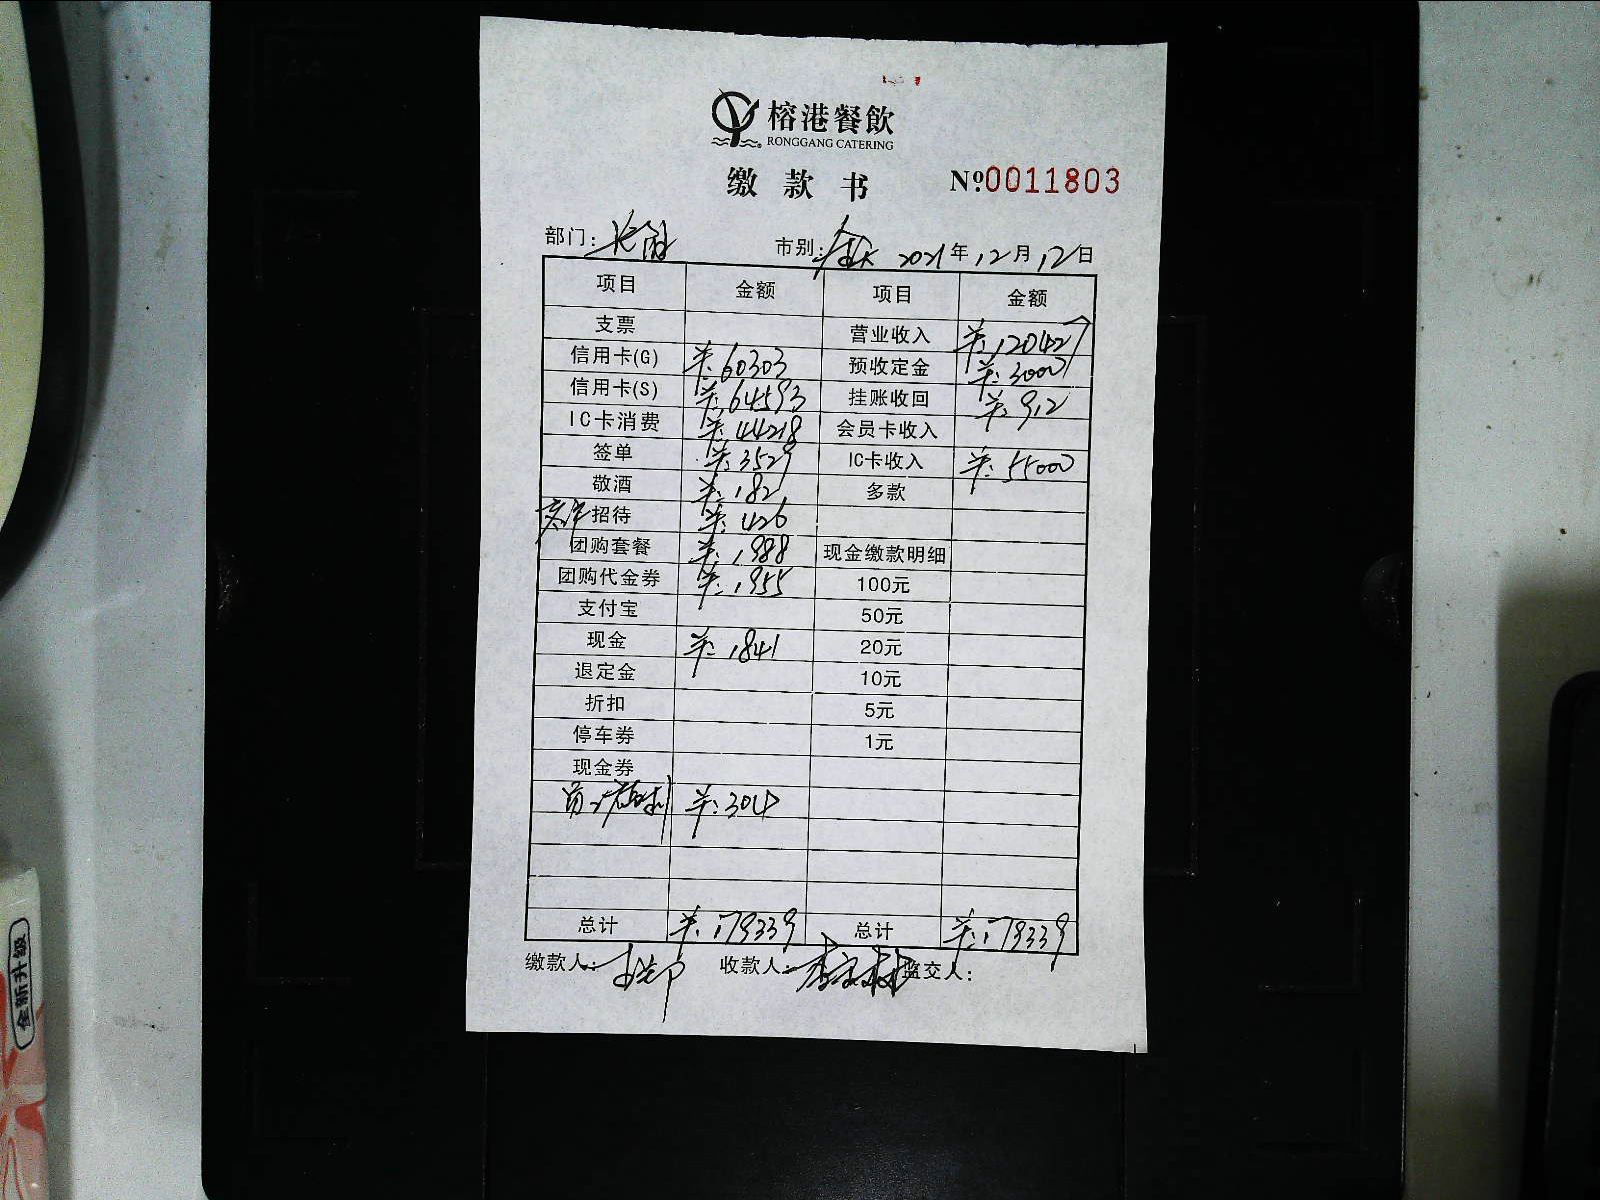 榕港餐飲
RONGGANG CATERING
缴款书 №0011803
部门: 市别: 全天 2021年12月12日
项目 金额 项目 金额
支票 营业收入 羊:120427
信用卡(G) 羊:60303 预收定金 羊:3000
信用卡(S) 羊:64593 挂账收回 羊:912
IC卡消费 羊:44218 会员卡收入
签单 羊:3529 IC卡收入 羊:55000
敬酒 羊:182 多款
招待 羊:426
团购套餐 羊:1988 现金缴款明细
团购代金券 羊:1955 100元
支付宝 50元
现金 羊:1841 20元
退定金 10元
折扣 5元
停车券 1元
现金券
员工福利 羊:304
总计 羊:179339 总计 羊:179339
缴款人: 收款人: 监交人:
全新升级